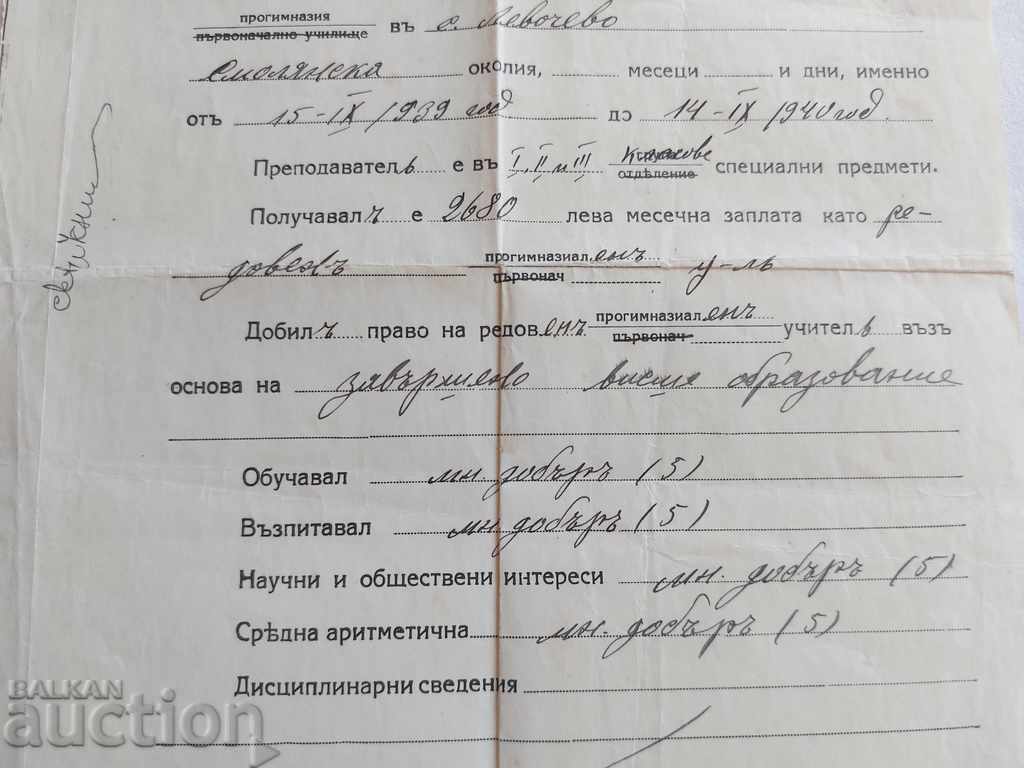 прогимназия
първоначално училище въ с. Левочево
Смолянска околия, месеци и дни, именно
отъ 15-IX 1939 год до 14-IX 1940 год.
Преподавателъ е въ I, II и III класове отдѣление специални предмети.
Получавалъ е 2680 лева месечна заплата като ре-
довенъ прогимназиаленъ първонач у-ль
Добилъ право на редовенъ прогимназиаленъ първонач учителъ възъ
основа на завършено висше образование
Обучавал мн. добъръ (5)
Възпитавал мн. добъръ (5)
Научни и обществени интереси мн. добъръ (5)
Срѣдна аритметична мн. добъръ (5)
Дисциплинарни сведения
BALKAN
auction